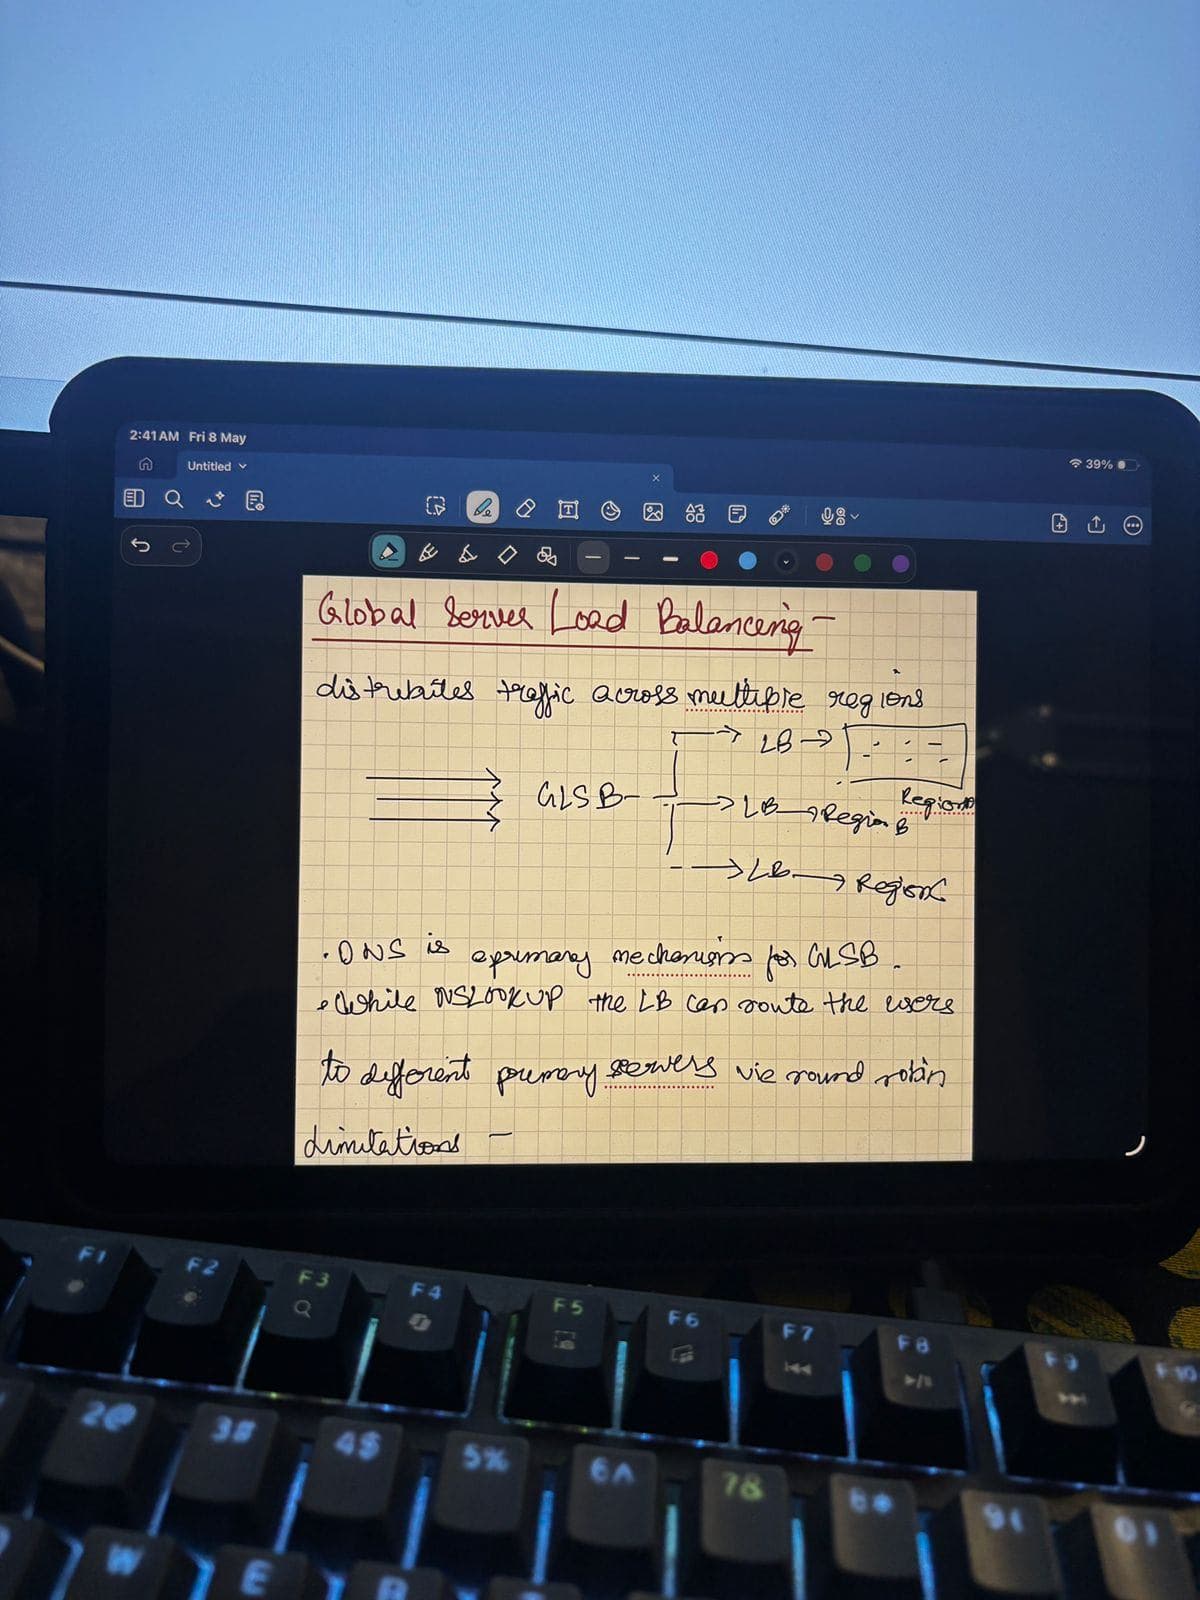 2:41 AM Fri 8 May
39%
Untitled
Global Server Load Balancing -
distributes traffic across multiple regions
LB →
GLSB -
Region A
→ LB → Region B
→ LB → Region C
. DNS is a primary mechanism for GLSB .
• While NSLOOKUP the LB can route the users
to different primary servers via round robin
Limitations -
F1 F2 F3 F4 F5 F6 F7 F8 F9 F10
2@ 3# 4$ 5% 6^ 7& 8* 9( 0)
W E R